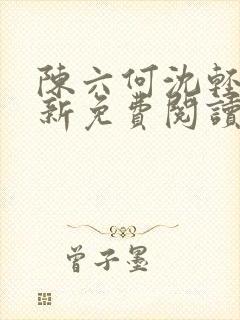 陳六何沈輕
新免費閱讀
曾子墨